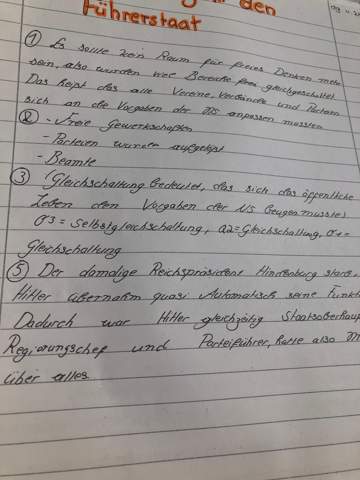 den
Führerstaat
① Es sollte kein Raum für freies Denken mehr
sein, also wurden viele Bereiche gleichgeschaltet
Das heißt das alle Vereine, Verbände und Parteien
sich an die Vorgaben der NS anpassen mussten
② - Freie Gewerkschaften
- Parteien wurden aufgelöst
- Beamte
③ (Gleichschaltung bedeutet, das sich das öffentliche
Leben den Vorgaben der NS beugen musste)
= Selbstgleichschaltung, a2 = Gleichschaltung,
Gleichschaltung
⑤ Der damalige Reichspräsident Hindenburg starb.
Hitler übernahm quasi Automatisch seine Funkt
Dadurch war Hitler gleichzeitig Staatsoberhaup
Regierungschef und Parteiführer, hatte also
über alles